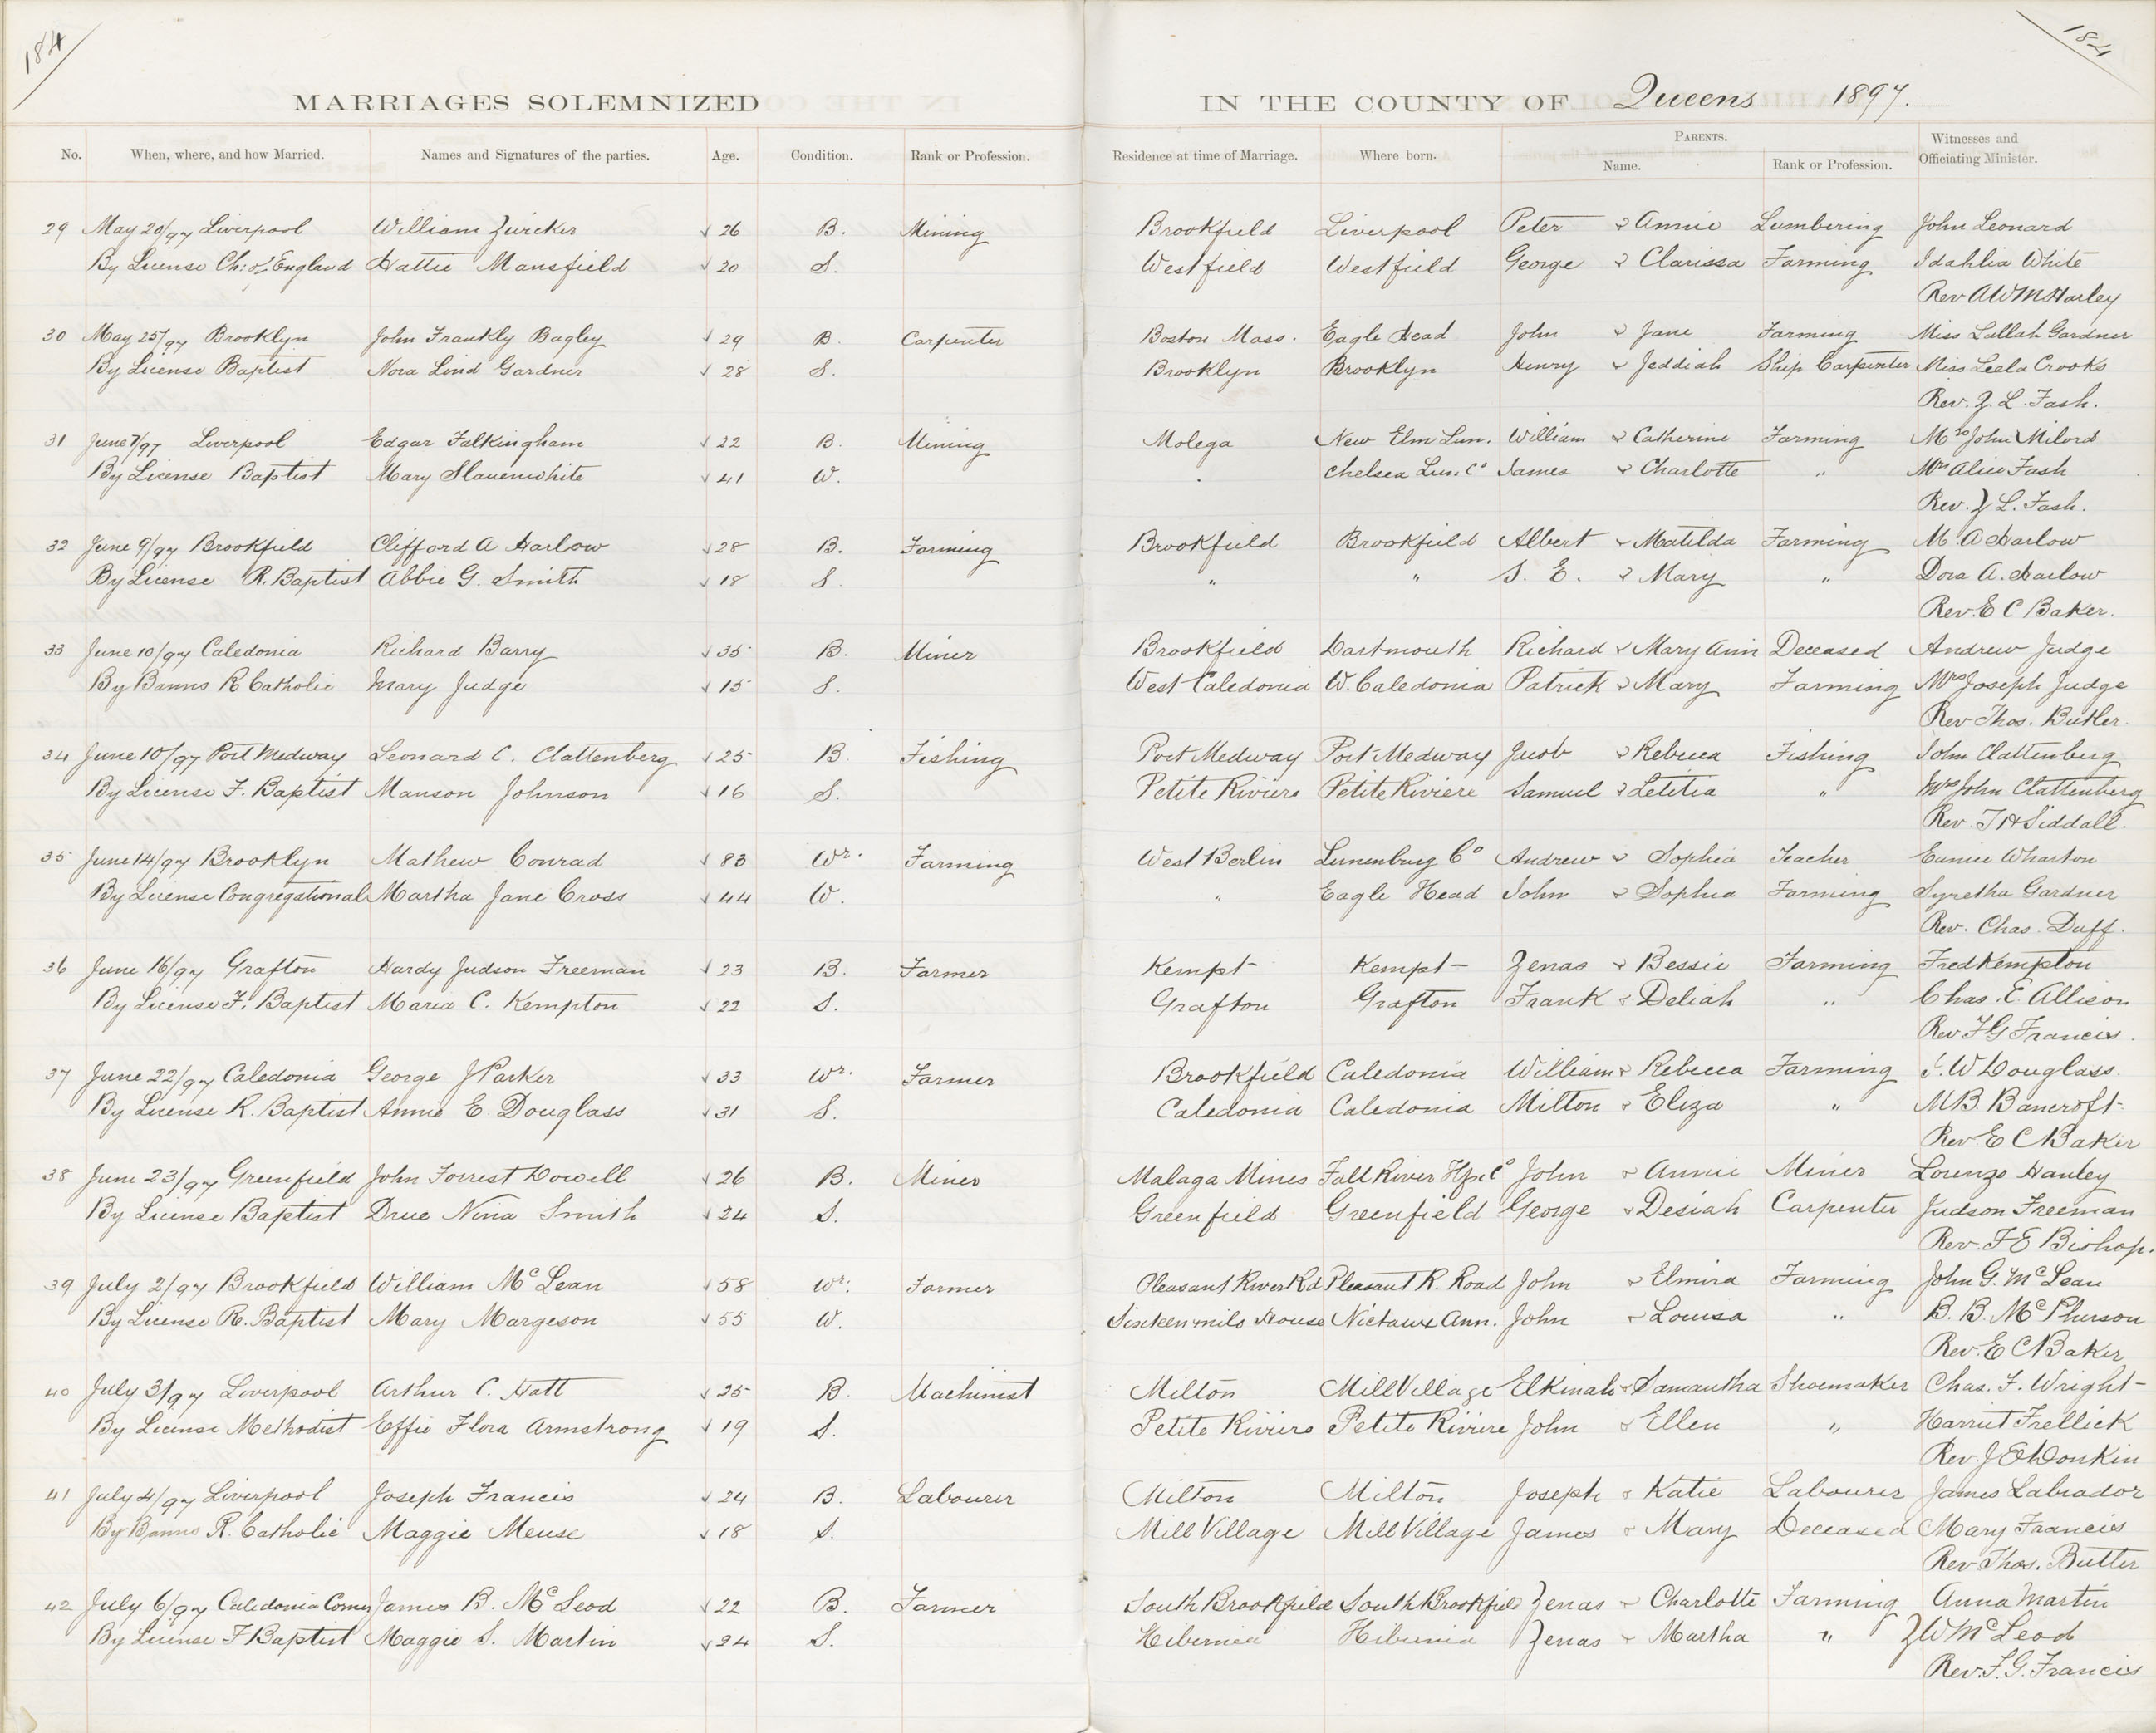 184
184
MARRIAGES SOLEMNIZED IN THE COUNTY OF Queens 1897.
No. When, where, and how Married. Names and Signatures of the parties. Age. Condition. Rank or Profession. Residence at time of Marriage. Where born. PARENTS. Name. Rank or Profession. Witnesses and Officiating Minister.
29 May 20/97 Liverpool William Zwicker √ 26 B. Mining Brookfield Liverpool Peter & Annie Lumbering John Leonard
By License Ch: of England Hattie Mansfield √ 20 S. Westfield Westfield George & Clarissa Farming Idahlia White
Rev A W M Harley
30 May 25/97 Brooklyn John Frankly Bagley √ 29 B. Carpenter Boston Mass. Eagle Head John & Jane Farming Miss Lallah Gardner
By License Baptist Nora Lind Gardner √ 28 S. Brooklyn Brooklyn Henry & Jeddiah Ship Carpenter Miss Leela Crooks
Rev. Z. L. Fash.
31 June 7/97 Liverpool Edgar Falkingham √ 22 B. Mining Molega New Elm Lun. William & Catherine Farming Mrs John Milord
By License Baptist Mary Slauenwhite √ 41 W. Chelsea Lun. Co James & Charlotte " Mrs Alice Fash
Rev. Z L. Fash.
32 June 9/97 Brookfield Clifford A Harlow √ 28 B. Farming Brookfield Brookfield Albert & Matilda Farming M. A Harlow
By License R. Baptist Abbie G. Smith √ 18 S. " " S. E. & Mary " Dora A. Harlow
Rev. E C Baker.
33 June 10/97 Caledonia Richard Barry √ 35 B. Miner Brookfield Dartmouth Richard & Mary Ann Deceased Andrew Judge
By Banns R Catholic Mary Judge √ 15 S. West Caledonia W. Caledonia Patrick & Mary Farming Mrs Joseph Judge
Rev Thos. Butler.
34 June 10/97 Port Medway Leonard C. Clattenberg √ 25 B. Fishing Port Medway Port Medway Jacob & Rebecca Fishing John Clattenberg
By License F. Baptist Manson Johnson √ 16 S. Petite Riviere Petite Riviere Samuel & Letitia " Mrs John Clattenberg
Rev. T H Siddall.
35 June 14/97 Brooklyn Mathew Conrad √ 83 Wr. Farming West Berlin Lunenburg Co Andrew & Sophia Teacher Eunice Wharton
By License Congregational Martha Jane Cross √ 44 W. " Eagle Head John & Sophia Farming Syretha Gardner
Rev. Chas. Duff.
36 June 16/97 Grafton Hardy Judson Freeman √ 23 B. Farmer Kempt Kempt Zenas & Bessie Farming Fred Kempton
By License F. Baptist Maria C. Kempton √ 22 S. Grafton Grafton Frank & Deliah " Chas. E. Allison
Rev F G Francis.
37 June 22/97 Caledonia George J Parker √ 33 Wr. Farmer Brookfield Caledonia William & Rebecca Farming W Douglass.
By License R. Baptist Annie E. Douglass √ 31 S. Caledonia Caledonia Milton & Eliza " M B. Bancroft
Rev E C Baker
38 June 23/97 Greenfield John Forrest Dowell √ 26 B. Miner Malaga Mines Fall River Hfx Co John & Annie Miner Lorenzo Hanley
By License Baptist Drue Nina Smith √ 24 S. Greenfield Greenfield George & Desiah Carpenter Judson Freeman
Rev. F E Bishop.
39 July 2/97 Brookfield William McLean √ 58 Wr. Farmer Pleasant River Rd Pleasant R. Road John & Elmira Farming John G. McLean
By License R. Baptist Mary Margeson √ 55 W. Sixteen mile House Nictaux Ann. John & Louisa " B. B. McPherson
Rev. E C Baker
40 July 3/97 Liverpool Arthur C. Hatt √ 25 B. Machinist Milton Mill Village Elkinah & Samantha Shoemaker Chas. F. Wright
By License Methodist Effie Flora Armstrong √ 19 S. Petite Riviere Petite Riviere John & Ellen " Harriet Frellick
Rev. J E Donkin
41 July 4/97 Liverpool Joseph Francis √ 24 B. Labourer Milton Milton Joseph & Katie Labourer James Labrador
By Banns R. Catholic Maggie Meuse √ 18 S. Mill Village Mill Village James & Mary Deceased Mary Francis
Rev Thos. Butler
42 July 6/97 Caledonia Corner James B. McLeod √ 22 B. Farmer South Brookfield South Brookfield Zenas & Charlotte Farming Anna Martin
By License F Baptist Maggie S. Martin √ 24 S. Hibernia Hibernia Zenas & Martha " Z W McLeod
Rev. F. G. Francis